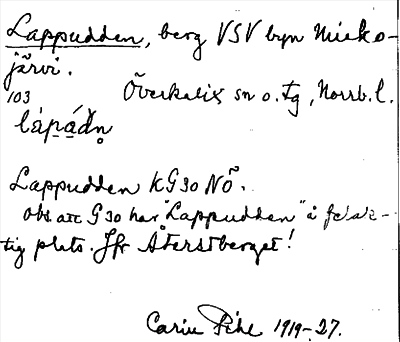 Lappudden, berg VSV byn Misko-
järvi.
103 Överkalix sn o. tg, Norrb. l.
Lappudden KG30 NÖ.
Obs att G30 har "Lappudden" å felak-
tig plats. Jfr Återstberget!
Carin Pihl 1919-27.